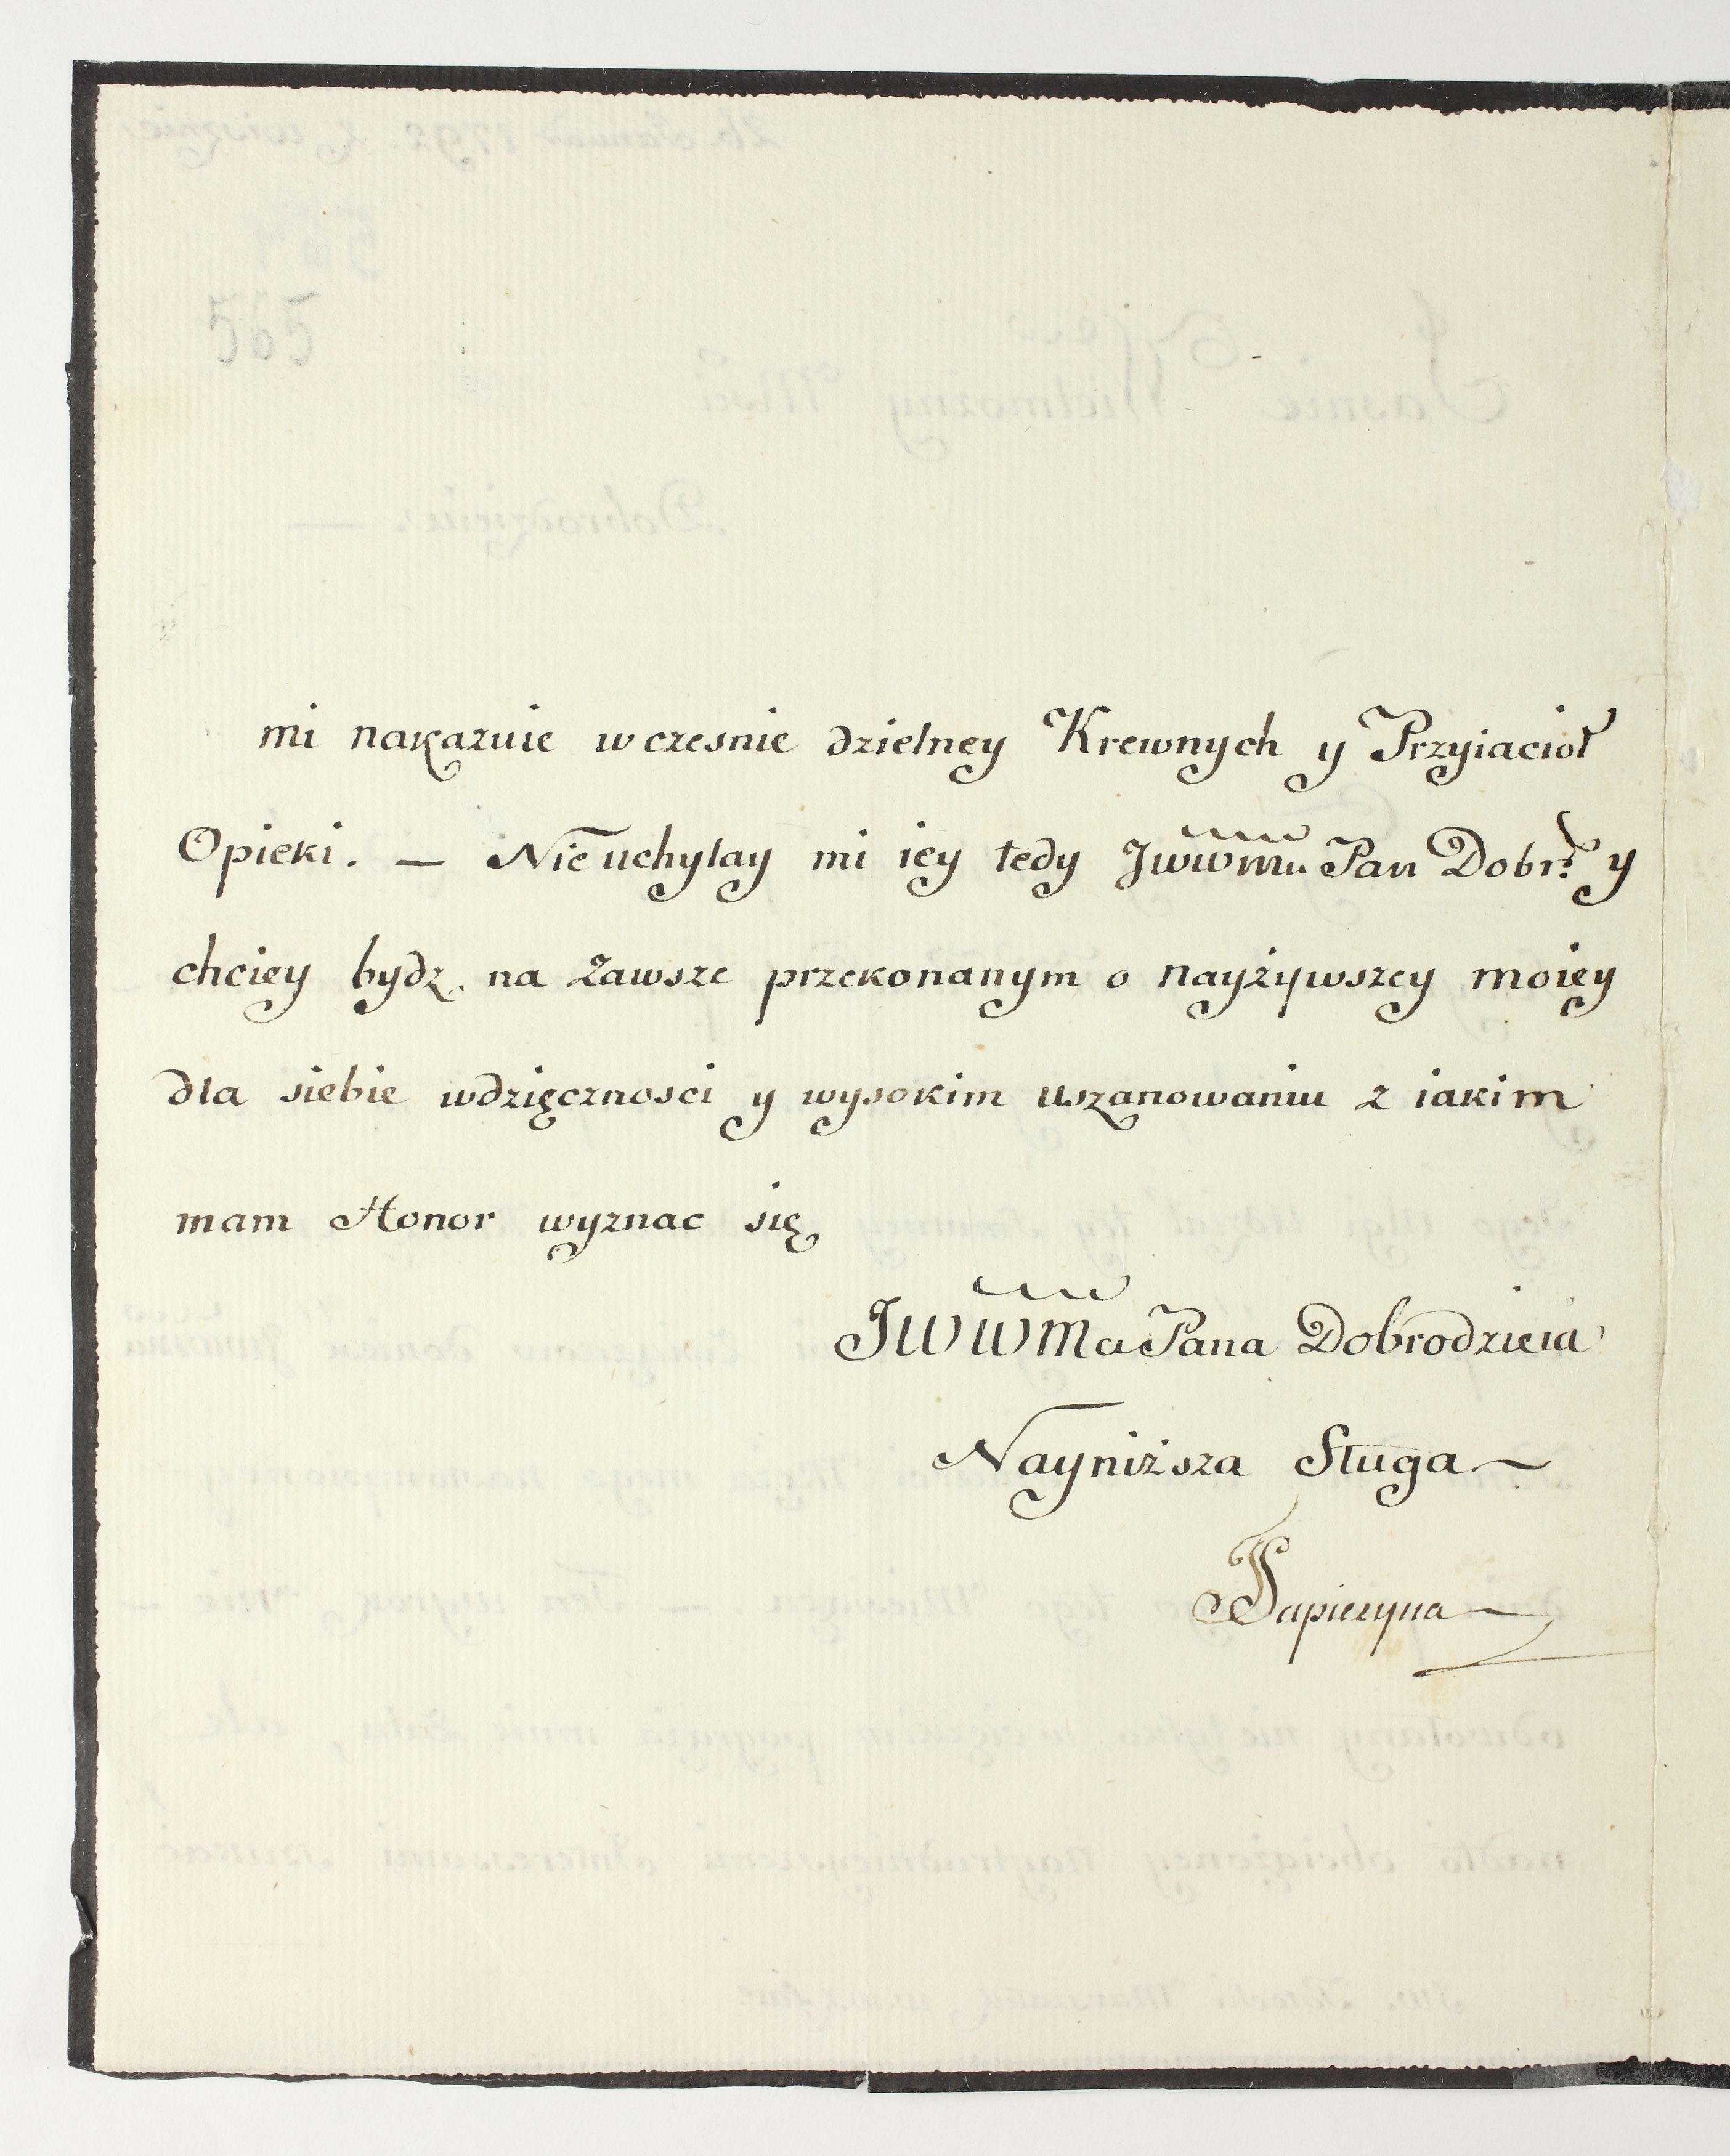 565
mi nakazuie wczesnie dzielney Krewnych y Przyiacioł
Opieki. — Nie uchylay mi iey tedy JWWMu Pan Dobr: y
chciey bydz na zawsze przekonanym o nayżywszey moiey
dla siebie wdzięcznosci y wysokim uszanowaniu z iakim
mam Honor wyznac się
JWWMci Pana Dobrodzieia
Nayniższa Sługa
Sapiezyna